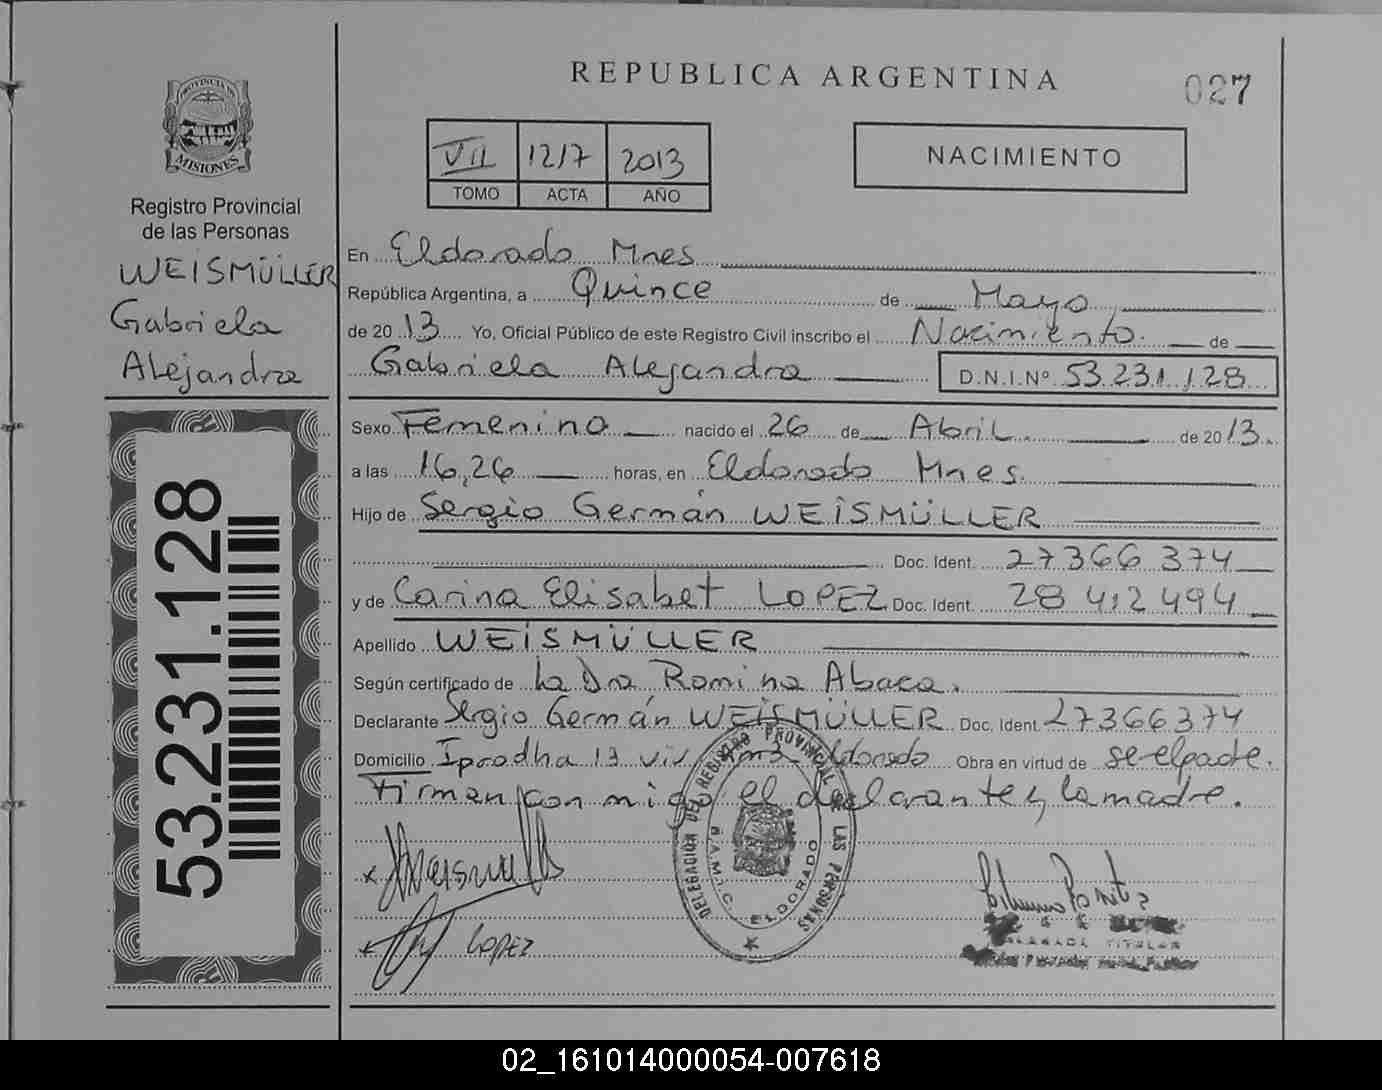 REPUBLICA ARGENTINA
027
PROVINCIA DE
MISIONES
Registro Provincial
de las Personas
WEISMÜLLER
Gabriela
Alejandra
53.231.128
VII 1217 2013
TOMO ACTA AÑO
NACIMIENTO
En Eldorado Mnes
República Argentina, a Quince de Mayo
de 2013 Yo, Oficial Público de este Registro Civil inscribo el Nacimiento. de
Gabriela Alejandra D.N.I.Nº 53.231.128
Sexo Femenino nacido el 26 de Abril de 2013.
a las 16,26 horas, en Eldorado Mnes.
Hijo de Sergio Germán WEISMÜLLER
Doc. Ident. 27366 374
y de Carina Elisabet LOPEZ Doc. Ident. 28 412 494
Apellido WEISMÜLLER
Según certificado de La Dra Romina Abaca.
Declarante Sergio Germán WEISMÜLLER Doc. Ident. 27366374
Domicilio Iprodha 13 viv Eldorado Obra en virtud de
Firman conmigo el declarante y la madre.
DELEGACION DEL REGISTRO PROVINCIAL DE LAS PERSONAS
ELDORADO
LOPEZ
TITULAR
02_161014000054-007618